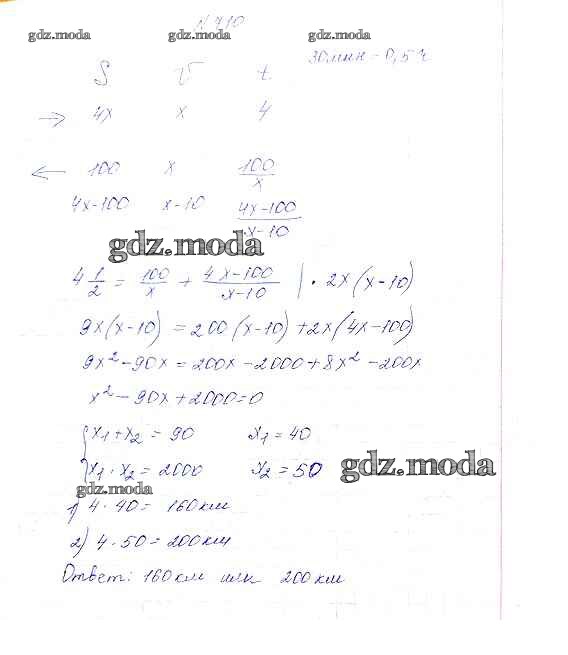 N 710
gdz.moda gdz.moda gdz.moda
30 мин = 0,5 ч
S V t
→ 4x x 4
← 100 x 100/x
4x-100 x-10 4x-100/x-10
gdz.moda
4 1/2 = 100/x + 4x-100/x-10 | · 2x(x-10)
9x(x-10) = 200(x-10)+2x(4x-100)
9x²-90x = 200x-2000+8x²-200x
x²-90x+2000=0
{x₁+x₂ = 90 x₁ = 40
x₁·x₂ = 2000 x₂ = 50
gdz.moda
gdz.moda
1) 4·40= 160 км
2) 4·50 = 200 км
Ответ: 160 км или 200 км